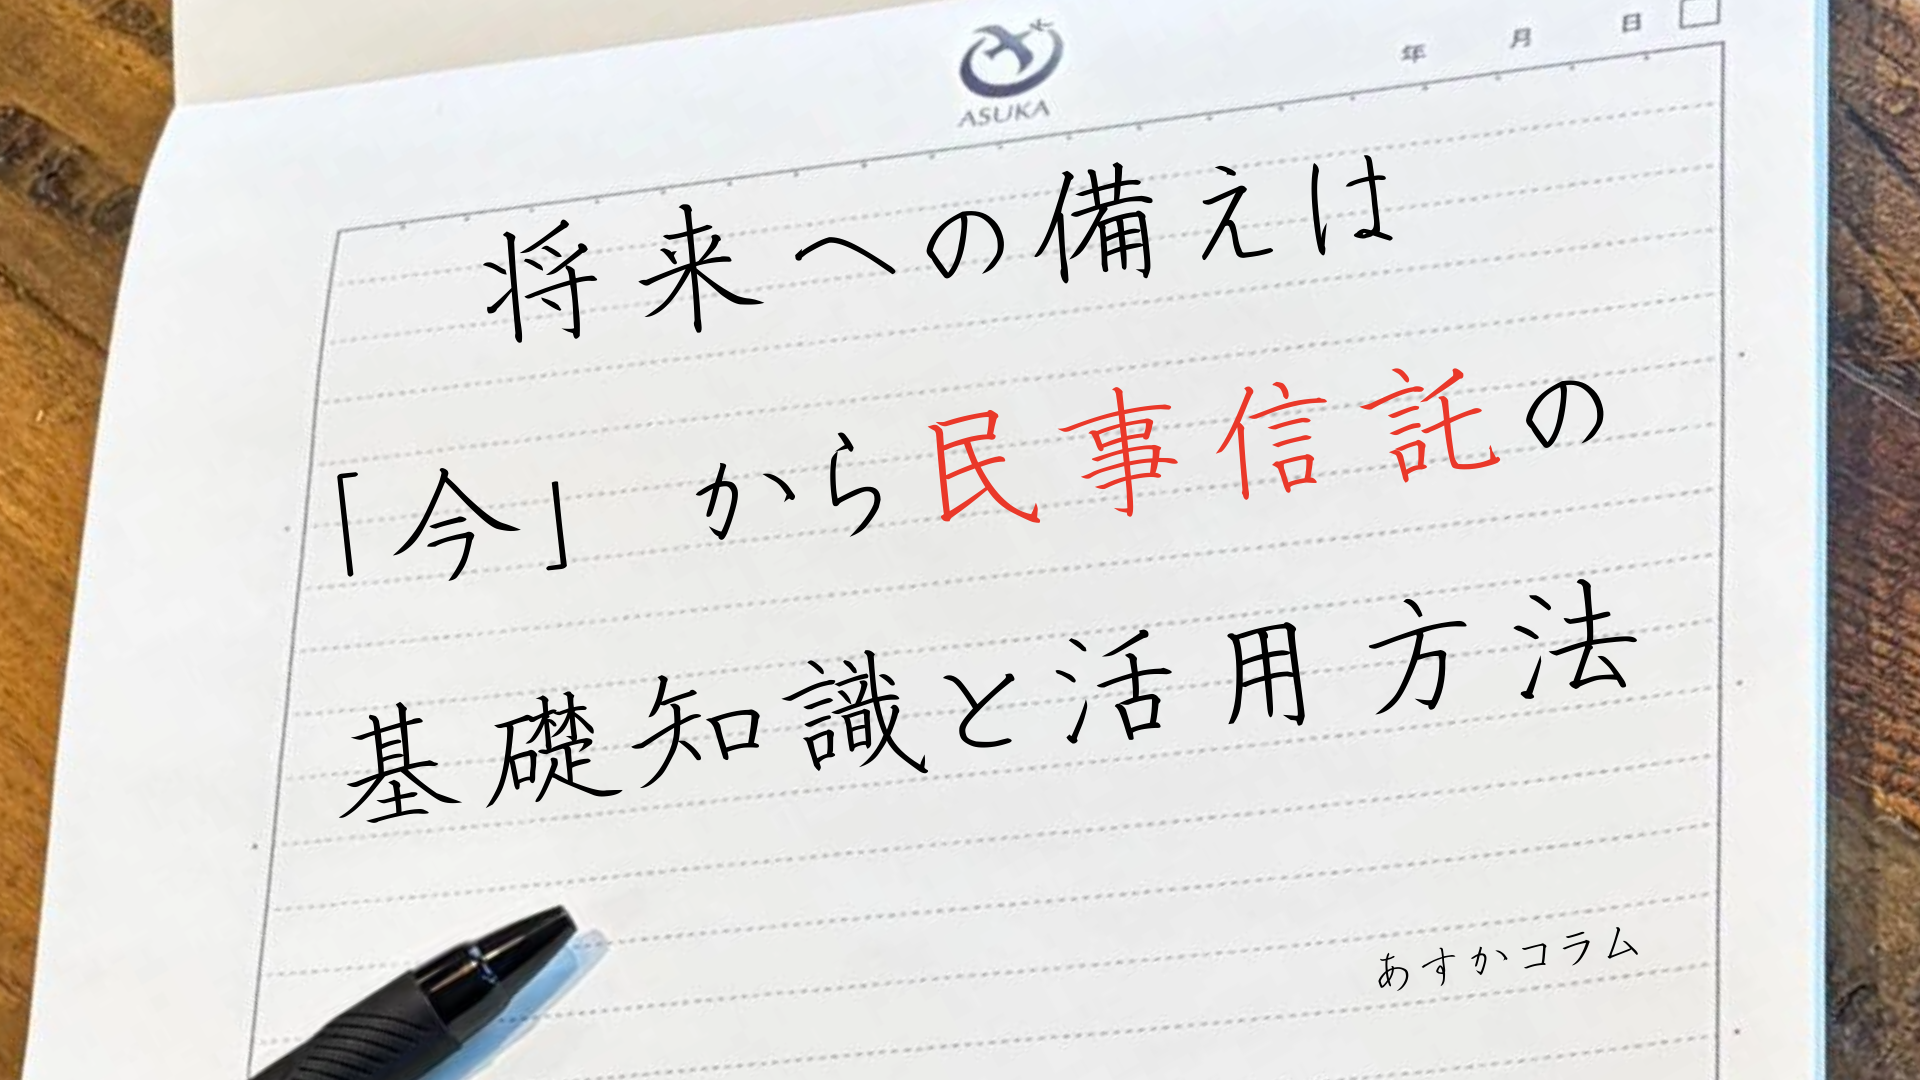 年 月 日
ASUKA
将来への備えは
「今」から民事信託の
基礎知識と活用方法
あすかコラム